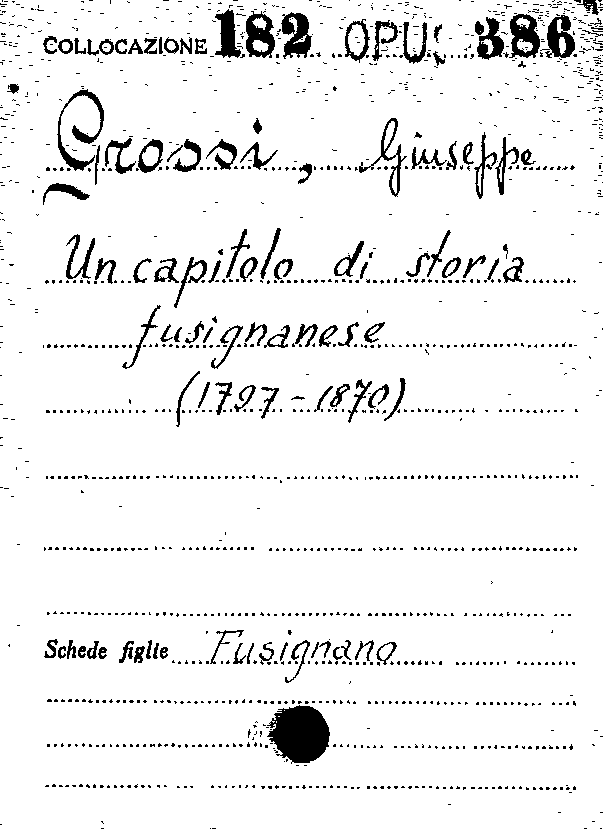 COLLOCAZIONE 182 OPU: 386
Grossi, Giuseppe
Un capitolo di storia
fusignanese
(1797-1870)
Schede figlie Fusignano